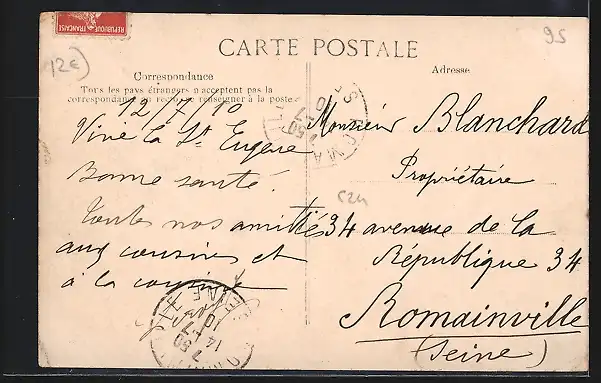 REPUBLIQUE FRANÇAISE
CARTE POSTALE
95
12€
Correspondance
Tous les pays étrangers n'acceptent pas la
correspondance au recto se renseigner à la poste
Adresse
12/7/10
Vive la St Eugene
Bonne santé.
toutes nos amitiés
aux cousins et
à la cousine
Monsieur Blanchard
Propriétaire
34 avenue de la
République 34
Romainville
(Seine)
7 50
14 - 7
10